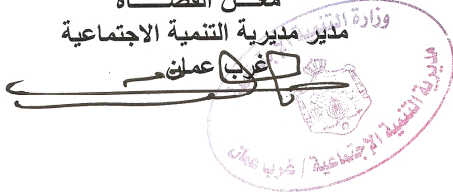 معن القضاة
مدير مديرية التنمية الاجتماعية
غرب عمان
وزارة التنمية الاجتماعية
مديرية التنمية الاجتماعية / غرب عمان